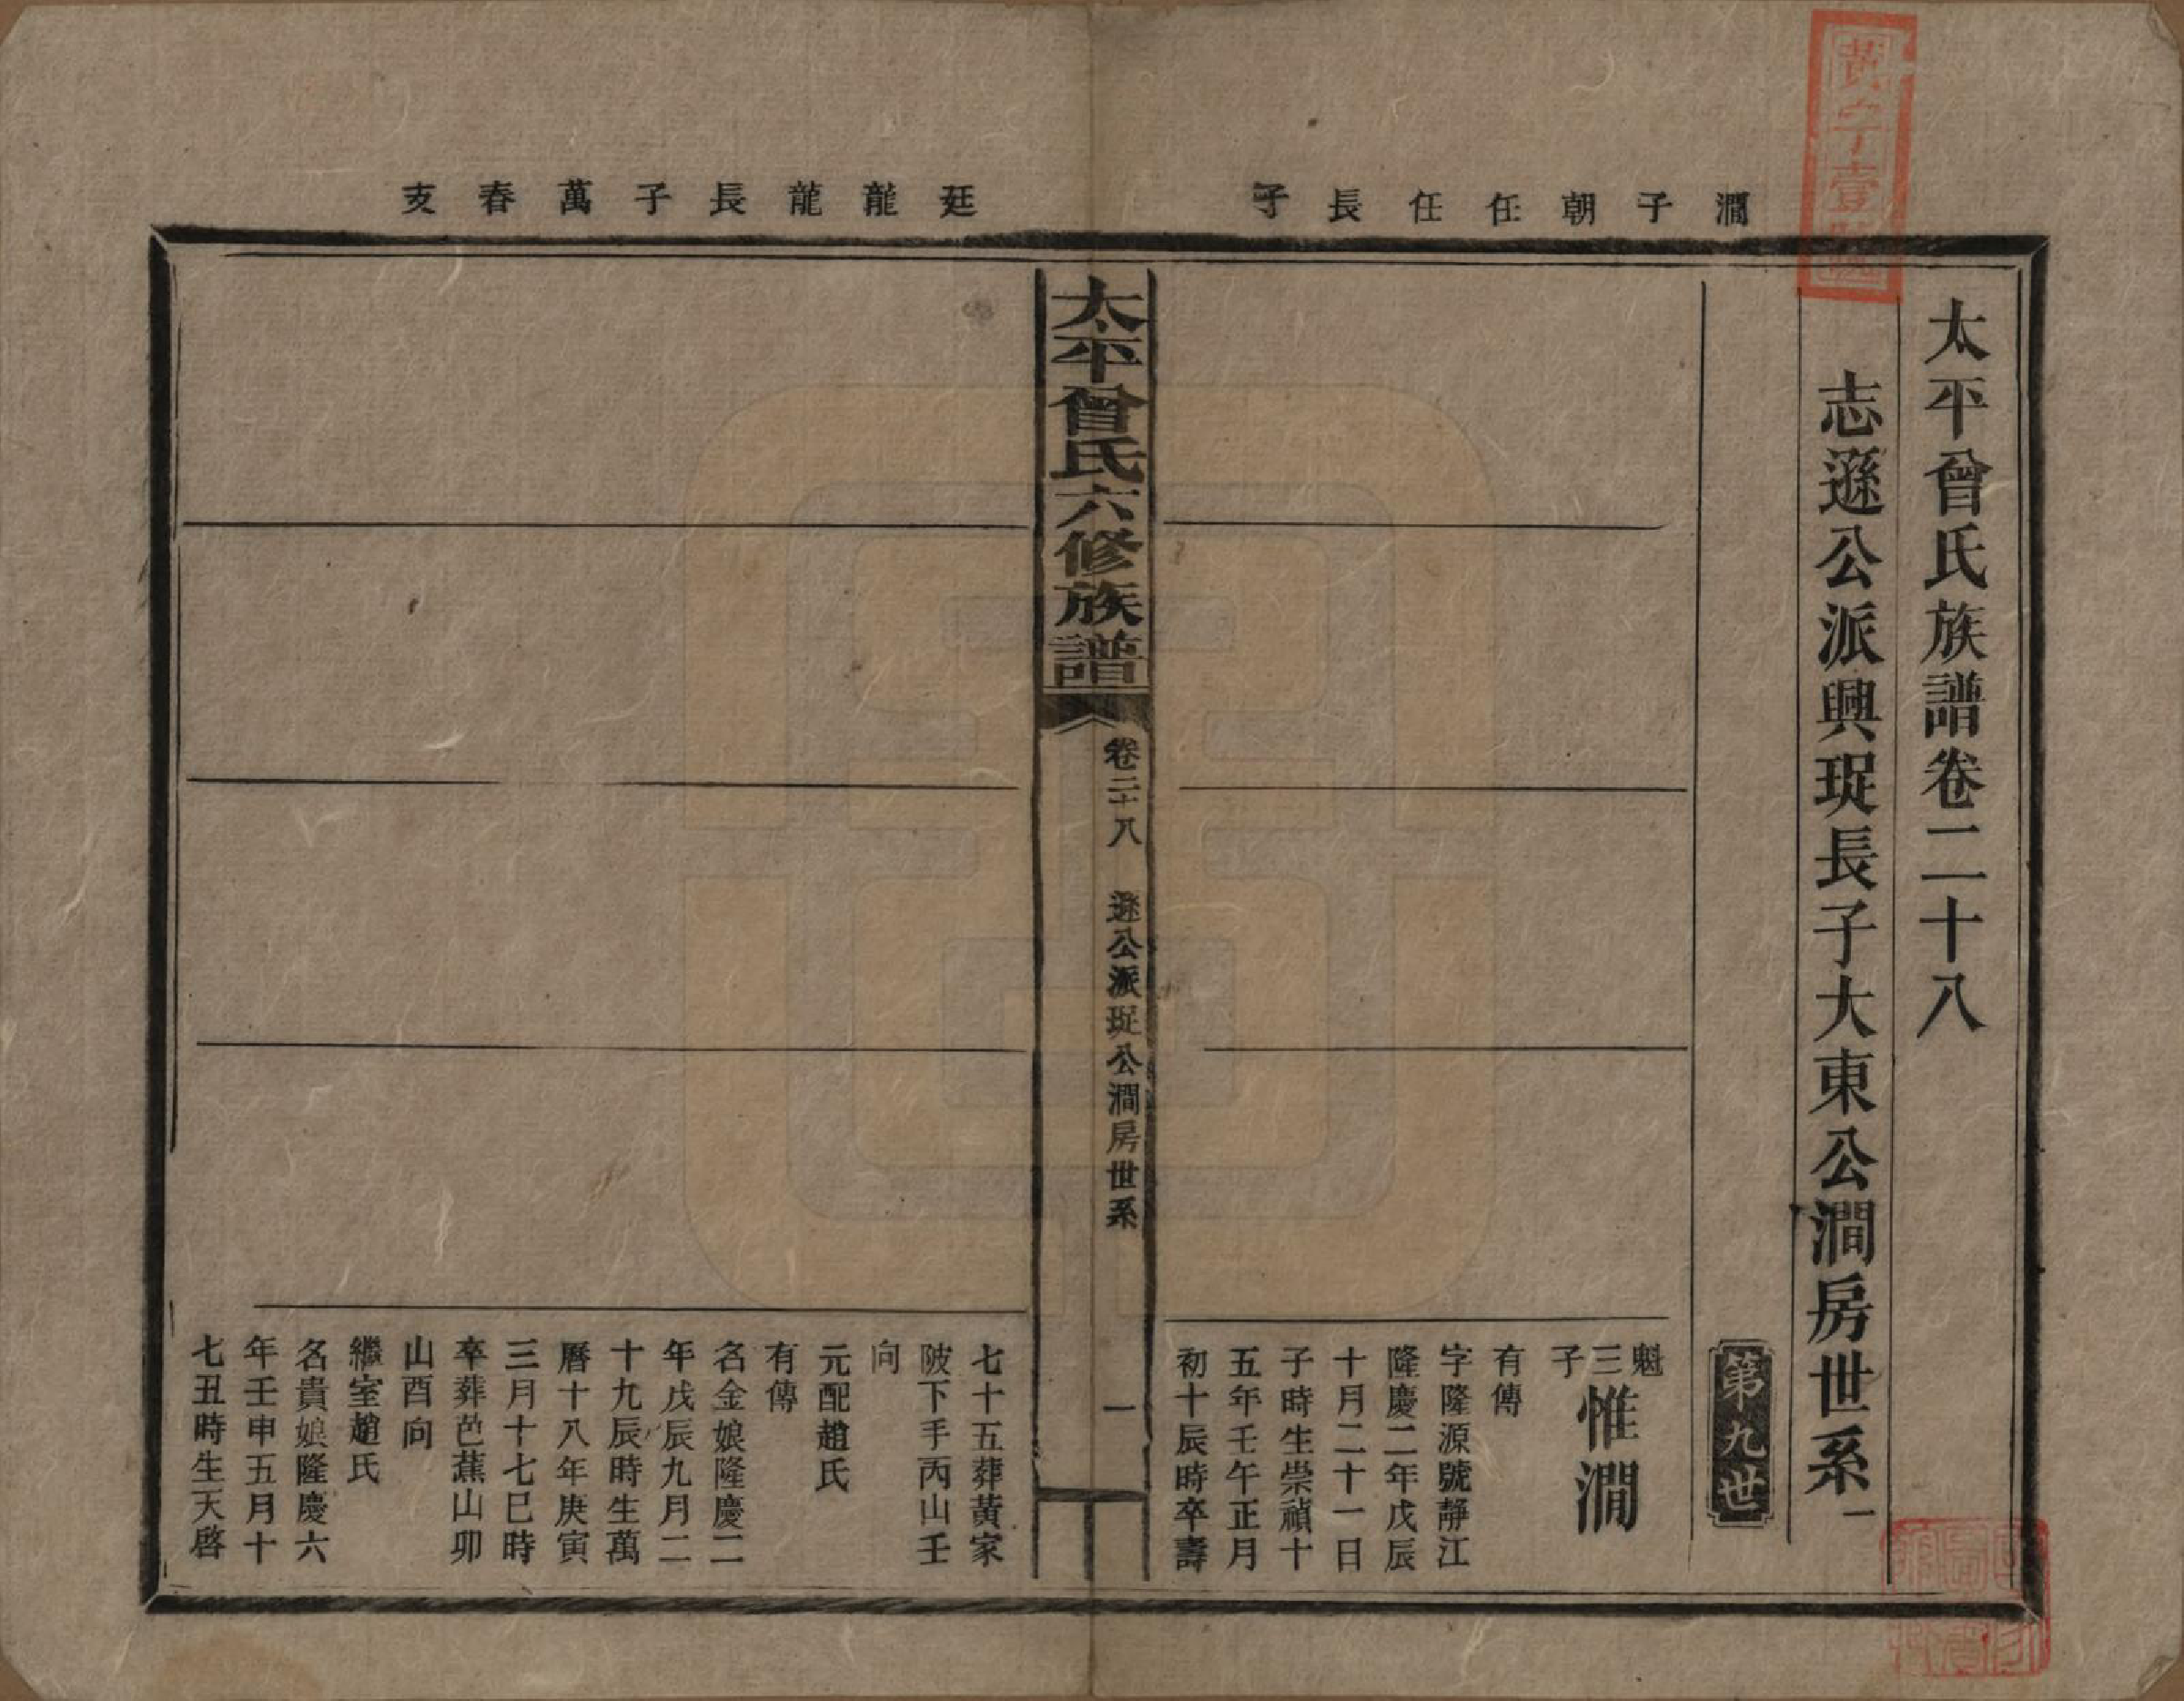 黃字壹號
澗子朝任任長子
太平曾氏族譜卷二十八
志遜公派興珿長子大東公澗房世系一
第九世
魁三子
惟澗
有傳
字隆源號靜江
隆慶二年戊辰
十月二十一日
子時生崇禎十
五年壬午正月
初十辰時卒壽
太平曾氏六修族譜
卷二十八　遜公派珿公澗房世系　一
廷龍龍長子萬春支
七十五葬黃家
陂下手丙山壬
向
元配趙氏
有傳
名金娘隆慶二
年戊辰九月二
十九辰時生萬
曆十八年庚寅
三月十七巳時
卒葬芭蕉山卯
山酉向
繼室趙氏
名貴娘隆慶六
年壬申五月十
七丑時生天啓